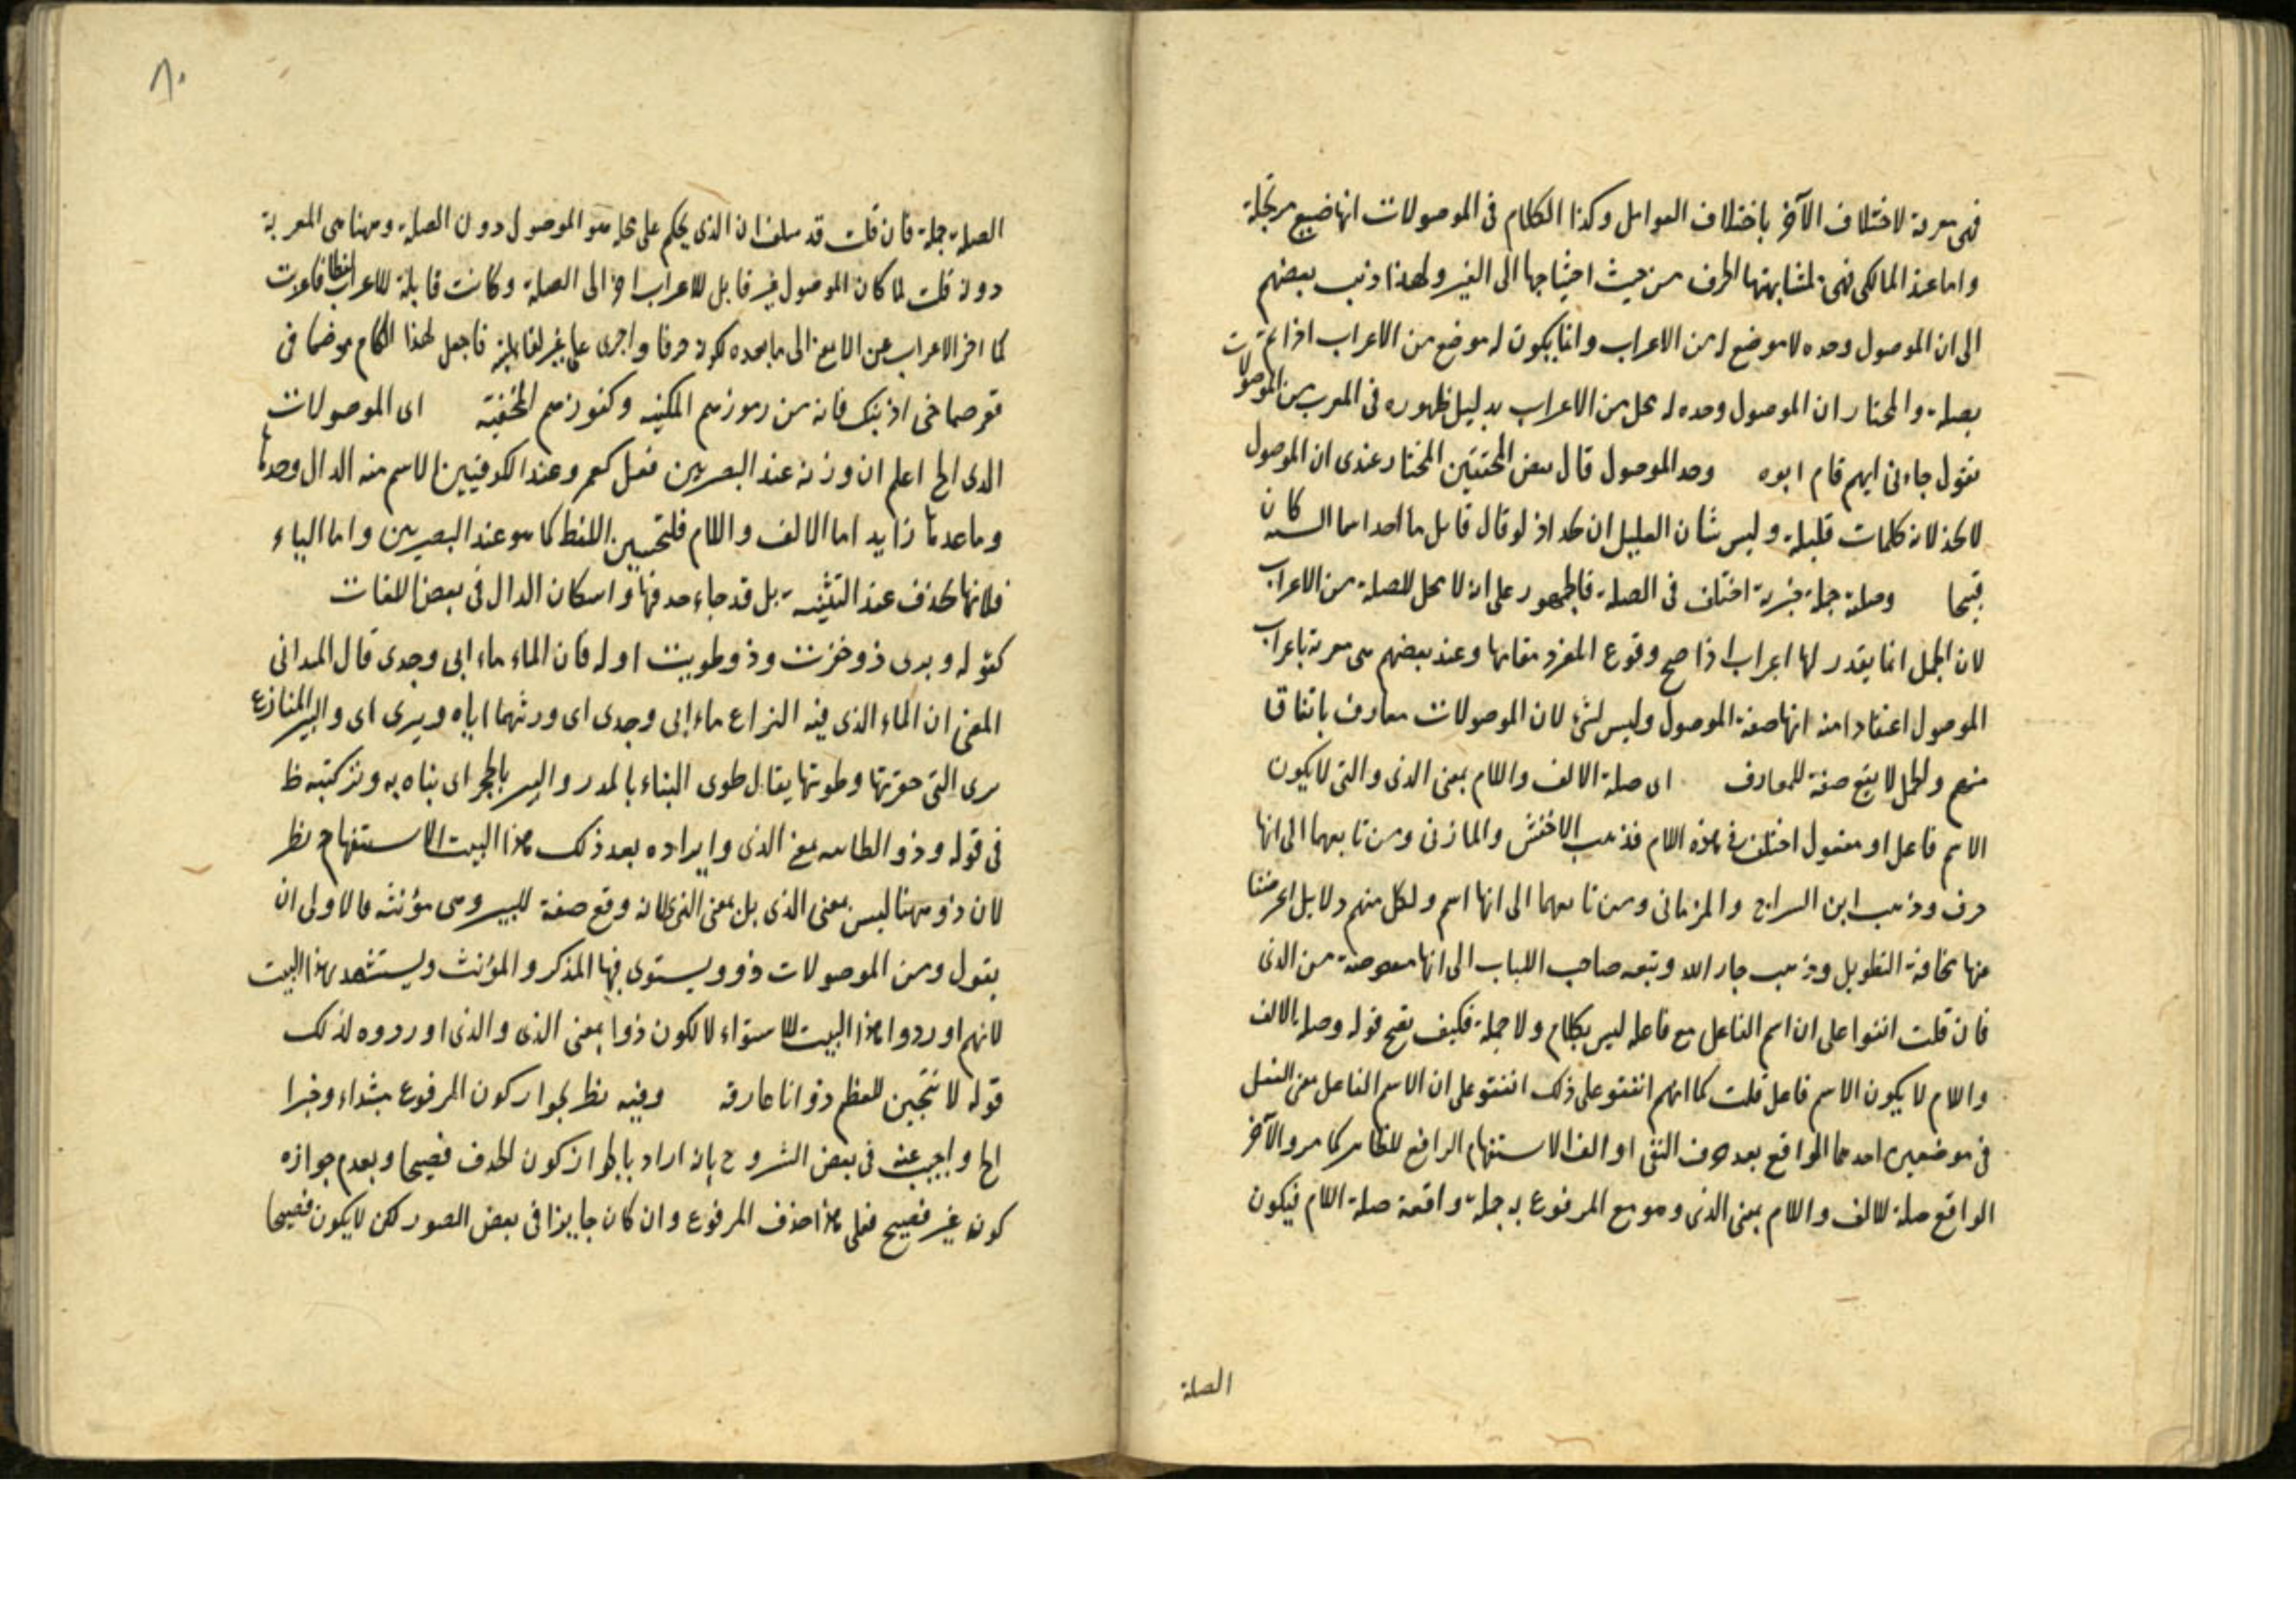 فهى معربة لاختلاف الآخر باختلاف العوامل وكذا الكلام فى الموصولات انها صيغ مرتجلة
واما عند المالكى فهى لمشابهتها الحرف من حيث احتياجها الى الغير ولهذا ذهب بعضهم
الى ان الموصول وحده لا موضع له من الاعراب وانما يكون له موضع من الاعراب اذا تم
بصلة والمختار ان الموصول وحده له محل من الاعراب بدليل ظهوره فى المعرب من الموصولات
نقول جاءنى ايهم قام ابوه وحد الموصول قال بعض المحققين المختار عندى ان الموصول
لا يحد لانه كلمات قليلة وليس شان القليل ان يحد اذ لو قال قايل ما احد اسما السته كان
قبيحا وصلته جملة خبرية اختلف فى الصلة فالجمهور على ان لا محل للصلة من الاعراب
لان الجمل انما يقدر لها اعراب اذا صح وقوع المفرد مقامها وعند بعضهم هى معربة باعراب
الموصول اعتقادا منه انها صفة الموصول وليس بشئ لان الموصولات معارف باتفاق
منهم والجمل لا يقع صفة للمعارف اى صلة الالف واللام بمعنى الذى والتى لا يكون
الاسم فاعل او مفعول اختلف فى هذه اللام فذهب الاخفش والمازنى ومن تابعهما الى انها
حرف وذهب ابن السراج والمرمانى ومن تابعهما الى انها اسم ولكل منهم دلايل اعرضنا
عنها مخافة التطويل وذهب جار الله وتبعه صاحب اللباب الى انها منقوصة من الذى
فان قلت اتفقوا على ان اسم الفاعل مع فاعله ليس بكلام ولا جملة فكيف يصح قوله وصلة الالف
واللام لا يكون الاسم فاعل قلت كما انهم اتفقو على ذلك اتفقو على ان الاسم الفاعل معنى الفعل
فى موضعين احدهما الواقع بعد حرف النفى او الف الاستفهام الرافع للظاهر كما مر والآخر
الواقع صلة للالف واللام بمعنى الذى وهو مع المرفوع به جملة واقعة صلة اللام فيكون
الصلة
٨٠
الصلة جملة فان قلت قد سلف ان الذى يحكم على محله هو الموصول دون الصلة وههنا هى المعربة
دونه قلت لما كان الموصول غير قابل للاعراب اخر الى الصلة وكانت قابلة للاعراب لفظا فاعربت
كما اخر الاعراب عن المانع الى ما بعده لكونه حرفا واجرى على غير لقابليته فاجعل لهذا الكلام موضعا فى
اذنيك فانه من رموزهم المكنيه وكنوزهم المخفية اى الموصولات
الذى الخ اعلم ان وزنه عند البصريين فعل كعم وعند الكوفيين الاسم منه الدال وحدها
وما عدها زايد اما الالف واللام فلتحسين اللفظ كما هو عند البصريين واما الياء
فلانها تحذف عند التثنية بل قد جاء حذفها واسكان الدال فى بعض اللغات
كقوله وبيرى ذو حفرت وذو طويت اوله فان الماء ماء ابى وجدى قال الميدانى
المعنى ان الماء الذى فيه النزاع ماء ابى وجدى اى ورثهما اياه وبيرى اى والبير المنازع
بيرى التى حفرتها وطويتها يقال طوى البناء بالمدر والبير بالحجر اى بناه به
فى قوله وذو الطائيه بمعنى الذى وايراده بعد ذلك هذا البيت للاستشهاد نظر
لان ذو ههنا ليس بمعنى الذى بل بمعنى التى لانه وقع صفة للبير وهى مؤنثه فالاولى ان
يقول ومن الموصولات ذو ويستوى فيها المذكر والمؤنث ويستشهد بهذا البيت
لانهم اوردوا هذا البيت للاستواء لا لكون ذوا بمعنى الذى والذى اوردوه لذلك
قوله لانتحين للعظم ذو انا عارقه وفيه نظر لجواز كون المرفوع مبتداء وخبرا
الخ واجيب عنه فى بعض الشروح بانه اراد بالجواز كون الحذف فصيحا وبعدم جوازه
كونه غير فصيح فعلى هذا حذف المرفوع وان كان جايزا فى بعض الصور لكن لا يكون فصيحا